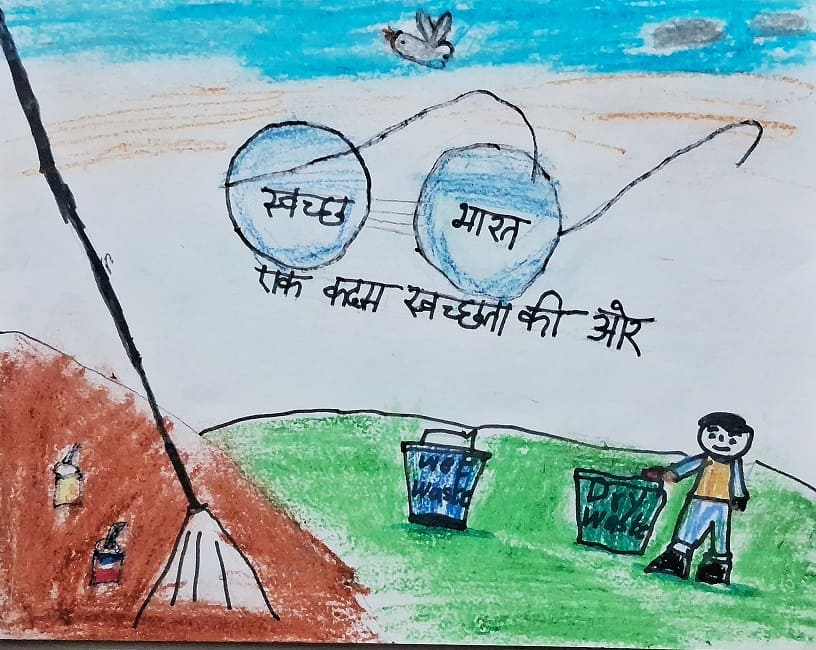 स्वच्छ
भारत
एक कदम स्वच्छता की ओर
wet
waste
Dry
waste